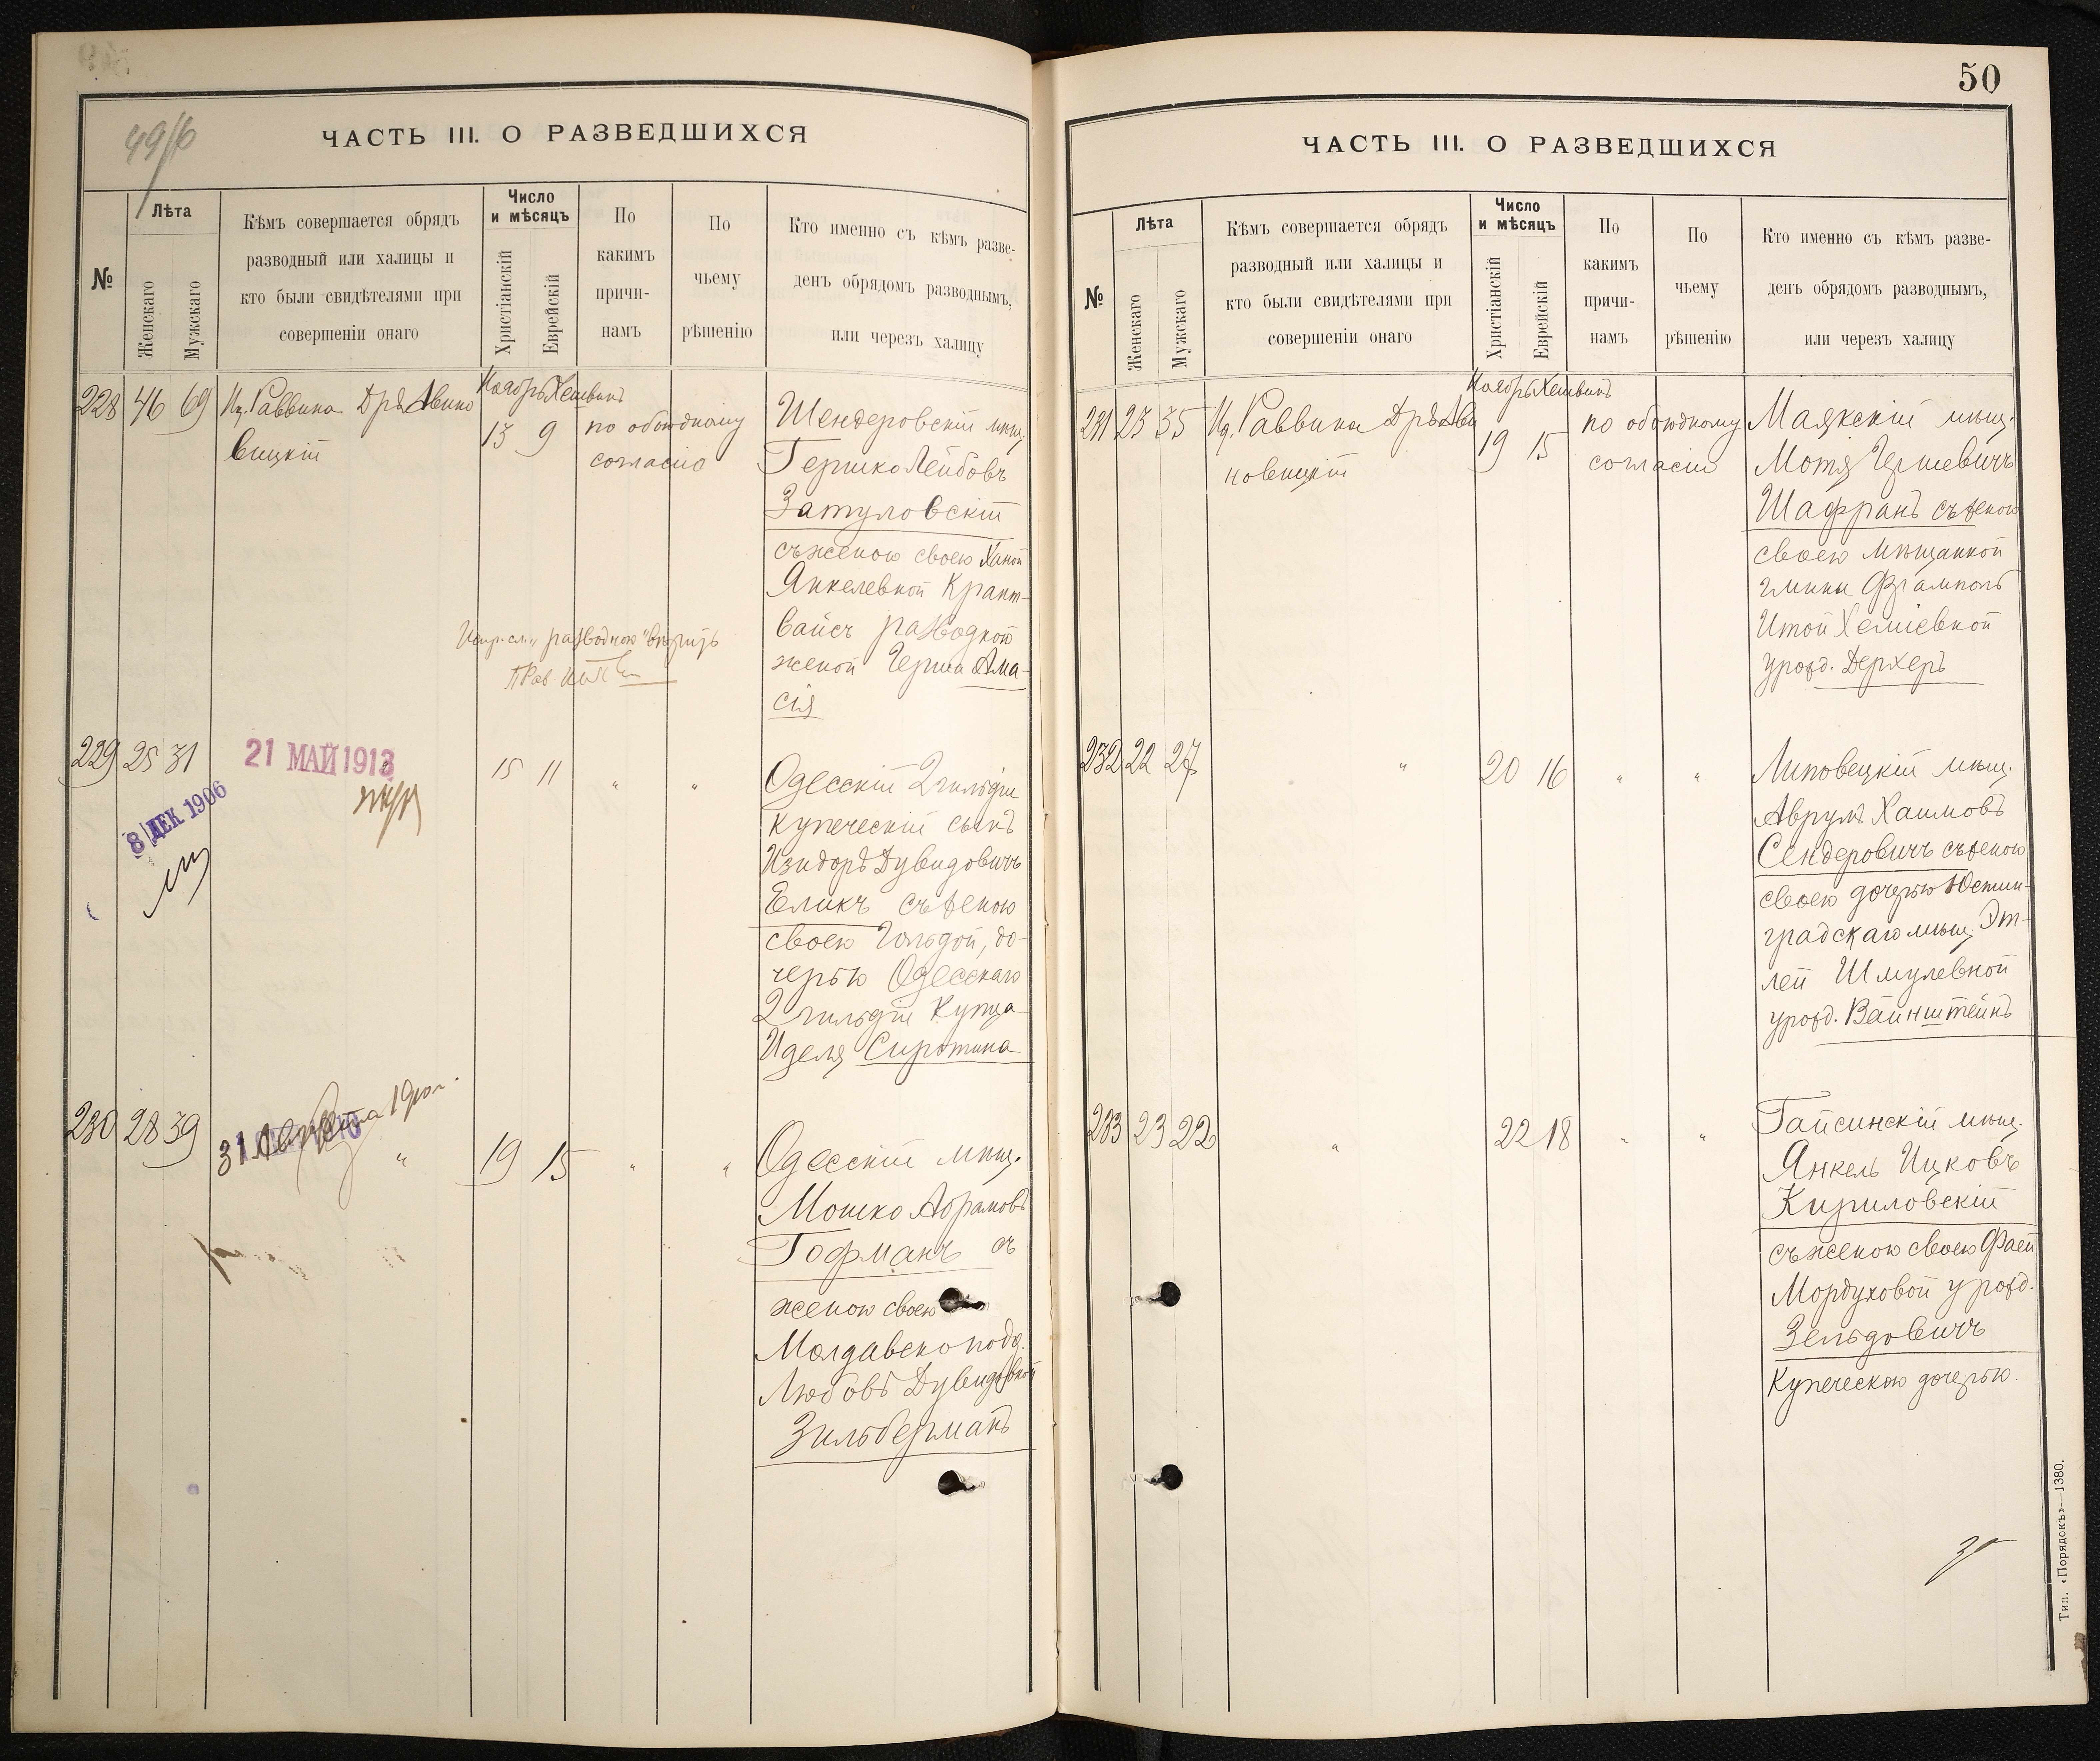 49/б
ЧАСТЬ III. О РАЗВЕДШИХСЯ
№
Лѣта
Женскаго
Мужскаго
Кѣмъ совершается обрядъ
разводный или халицы и
кто были свидѣтелями при
совершеніи онаго
Число
и мѣсяцъ
Христіанскій
Еврейскій
По
какимъ
причи-
намъ
По
чьему
рѣшенію
Кто именно съ кѣмъ разве-
денъ обрядомъ разводнымъ,
или черезъ халицу
Ноябрь Хешванъ
228 46 69 Раввина Дръ Авино
вицкій
13 9
по обоюдному
согласію
Шендеровскій мѣщ.
Гершко Лейбовъ
Затуловскій
съ женою своею Ханой
Янкелевной Крант-
вайсъ разводной
женой Герша Ама-
сія
229 25 31
21 МАЙ 1913
8 ДЕК 1906
15 11 " "
Одесскій 2 гильдіи
купеческій сынъ
Изидоръ Дувидовичъ
Еликъ съ женою
своею Гольдой, до-
черью Одесскаго
2 гильдіи Купца
Иделя Сиротина
230 28 39
31 Августа 1910г.
" 19 15 " "
Одесскій мѣщ.
Мошко Абрамовъ
Гофманъ съ
женою своею
Молдавско подд.
Любовь Дувидовной
Зильберманъ
50
ЧАСТЬ III. О РАЗВЕДШИХСЯ
№
Лѣта
Женскаго
Мужскаго
Кѣмъ совершается обрядъ
разводный или халицы и
кто были свидѣтелями при
совершеніи онаго
Число
и мѣсяцъ
Христіанскій
Еврейскій
По
какимъ
причи-
намъ
По
чьему
рѣшенію
Кто именно съ кѣмъ разве-
денъ обрядомъ разводнымъ,
или черезъ халицу
Ноябрь Хешванъ
231 23 35 Раввина Дръ Ави
новицкій
19 15
по обоюдному
согласію
Маякскій мѣщ.
Мотя Гершевичъ
Шафранъ съ женою
своею мѣщанкой
гмины
Итой Хемiевной
урожд. Дерхеръ
232 22 27 " 20 16 " "
Липовецкій мѣщ.
Аврумъ Хаимовъ
Сендеровичъ съ женою
своею дочерью Юстин-
градскаго мѣщ. Эт-
лей Шмулевной
урожд. Вайнштейнъ
233 23 22 " 22 18 " "
Гайсинскій мѣщ.
Янкель Ицковъ
Кириловскій
съ женою своею Фаей
Мордуховой урожд.
Зельдовичъ
Купеческою дочерью.
Тип. «Порядокъ»—1380.